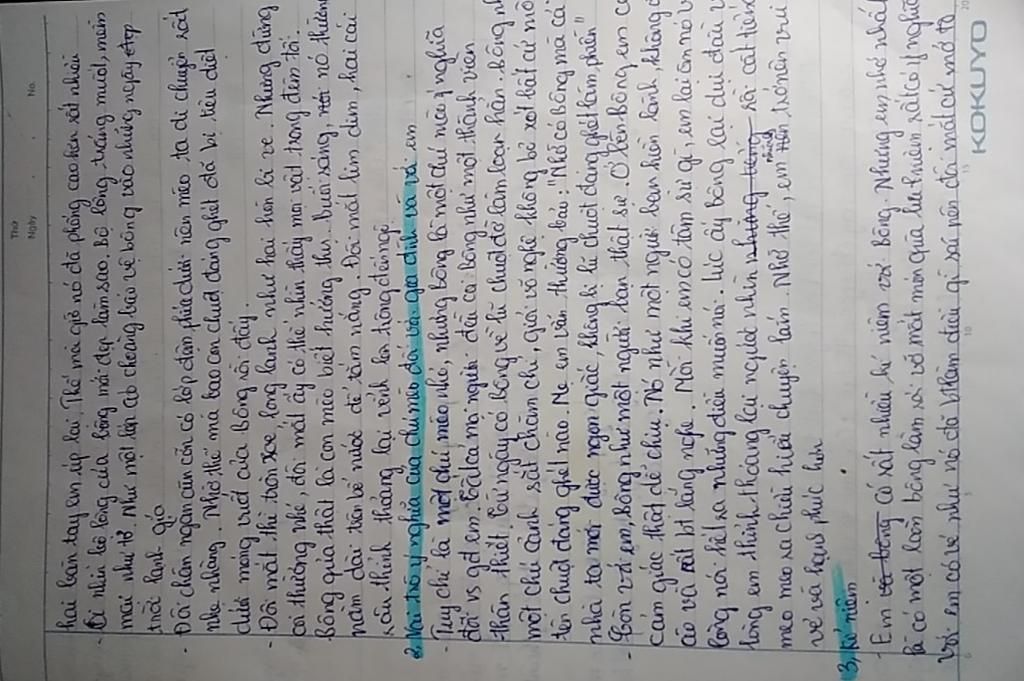 Thứ
Ngày
No.
hai bàn tay em úp lại. Thế mà giờ nó đã phổng cao hơn rất nhiều
- Cứ nhìn bộ lông của bông mới đẹp làm sao. Bộ lông trắng muốt, mềm
mại như tơ. Như một lớp áo choàng bảo vệ bông vào những ngày
trời lạnh giá
- Đôi chân ngắn cũn có lớp đệm phía dưới nên mèo ta di chuyển rất
nhẹ nhàng. Nhờ thế mà bao con chuột đáng ghét đã bị tiêu diệt
dưới móng vuốt của bông rồi đấy.
- Đôi mắt thì tròn xoe, long lanh như hai hòn bi ve. Nhưng đừng
coi thường nhé, đôi mắt ấy có thể nhìn thấy mọi vật trong đêm tối.
Bông quả thật là con mèo biết hưởng thụ. Buổi sáng, nó thường
nằm dài trên bể nước để tắm nắng. Đôi mắt lim dim, hai cái
tai thỉnh thoảng lại vểnh lên trông đến ngộ
2. Vai trò ý nghĩa của chú mèo đối với gia đình và với em
- Tuy chỉ là một chú mèo nhỏ, nhưng bông là một chú mèo ý nghĩa
đối vs gđ em. Tất cả mọi người đều coi bông như một thành viên
thân thiết. Từ ngày có bông về lũ chuột đỡ làm loạn hẳn. bông như
một chú cảnh sát chăm chỉ, giỏi võ nghệ không bỏ xót bất cứ một
tên chuột đáng ghét nào. Mẹ em vẫn thường bảo: "Nhờ có bông mà cả
nhà ta mới được ngon giấc, không bị lũ chuột đáng ghét làm phiền"
- Còn với em, bông như một người bạn thật sự. Ở bên bông, em có
cảm giác thật dễ chịu. Nó như một người bạn hiền lành, không
áo và rất biết lắng nghe. Mỗi khi em có tâm sự gì, em lại ôm nó
lòng nói hết ra những điều muốn nói. Lúc ấy bông lại dụi đầu
lòng em thỉnh thoảng lại ngước nhìn rồi cất tiếng
meo meo ra chiều hiểu chuyện lắm. Nhờ thế, nhiều em trở nên vui
vẻ và hạnh phúc hơn
3, Kỉ niệm
- Em có rất nhiều kỉ niệm với bông. Nhưng em nhớ nhất
là có một lần bông làm rơi vỡ một món quà lưu niệm rất có ý nghĩa
với em có vẻ như nó đã biết làm điều gì sai nên đôi mắt cứ mở to
KOKUYO